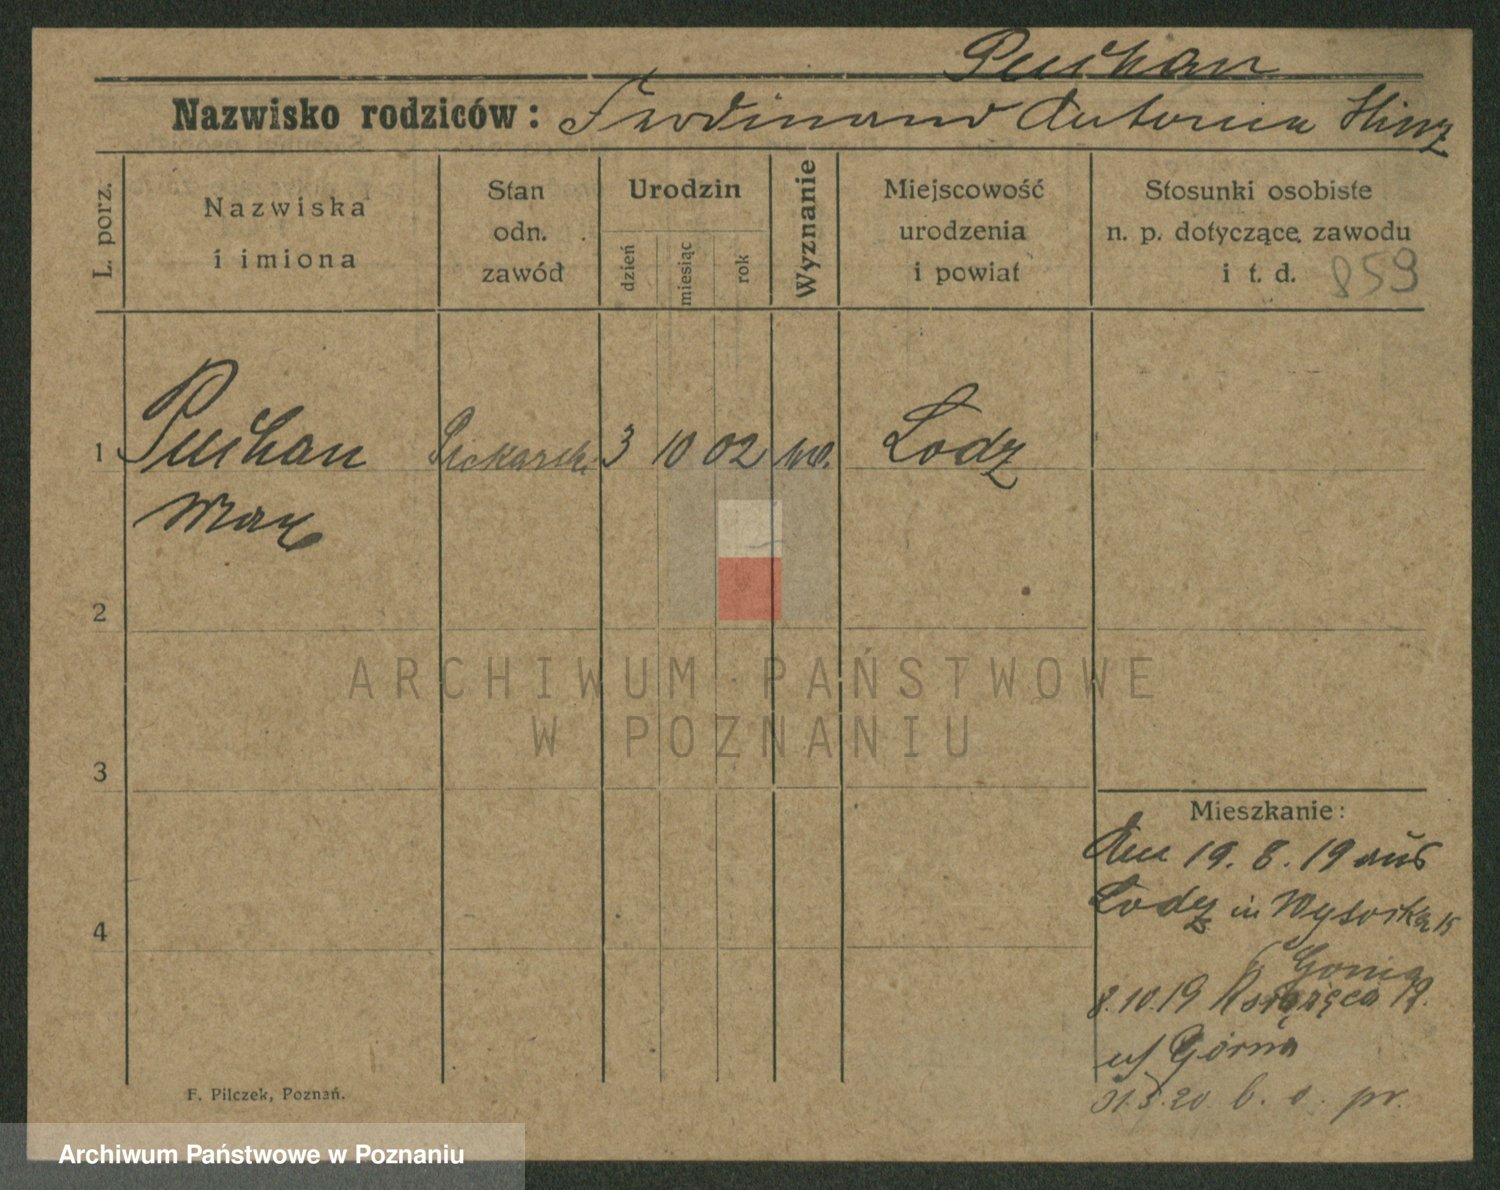 Puchan
Nazwisko rodziców: Ferdinand Antonia Hinz
L. porz.
Nazwiska
i imiona
Stan
odn.
zawód
Urodzin
dzień
miesiąc
rok
Wyznanie
Miejscowość
urodzenia
i powiat
Stosunki osobiste
n. p. dotyczące zawodu
i t. d. 859
1 Puchan 3 10 02 Lodz
Max
2
3
4
Mieszkanie:
Am 19. 8. 19 aus
Lodz in Wysocka 15
8.10.19
Górna
31.5.20 b. o. pr.
F. Pilczek, Poznań.
ARCHIWUM PAŃSTWOWE
W POZNANIU
Archiwum Państwowe w Poznaniu